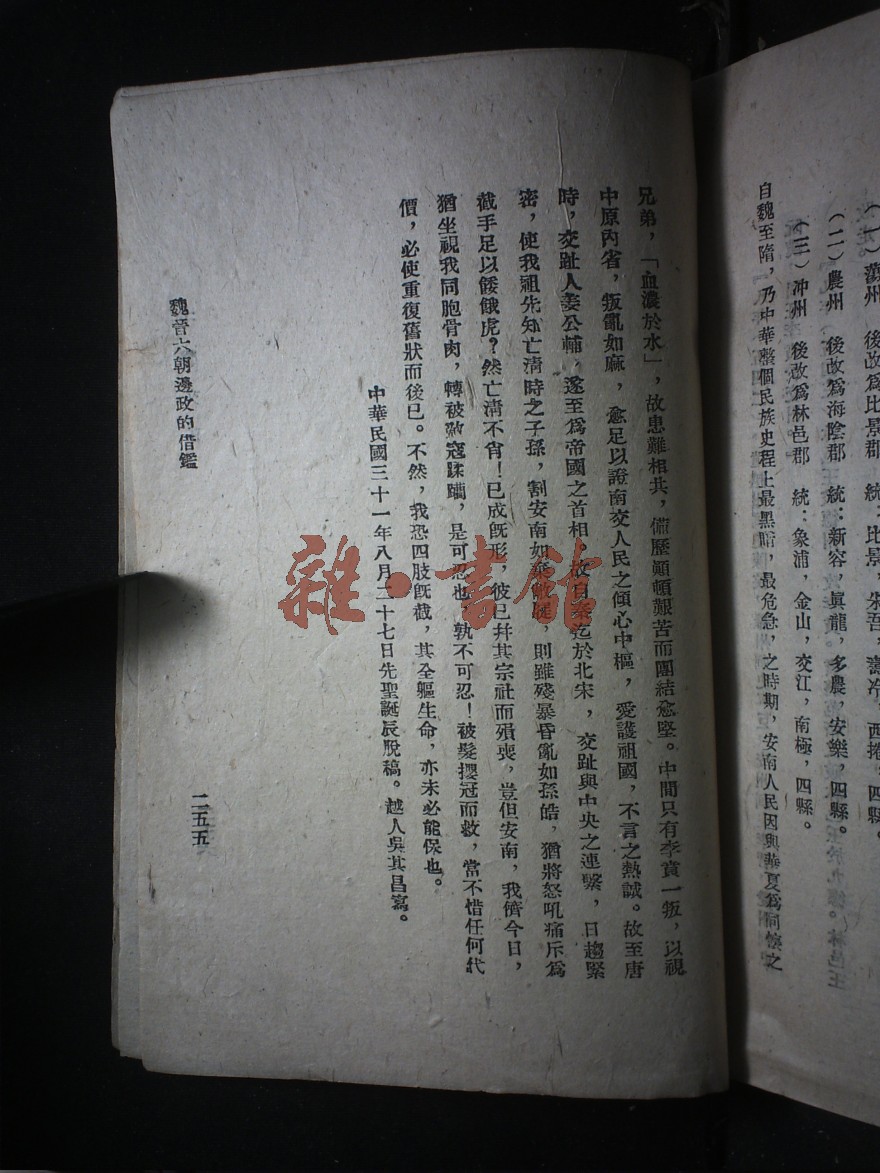 (一)蕩州 後改爲比景郡 統:比景,朱吾,壽泠,西捲,四縣。
(二)農州 後改爲海陰郡 統:新容,眞龍,多農,安樂,四縣。
(三)沖州 後改爲林邑郡 統:象浦,金山,交江,南極,四縣。
自魏至隋,乃中華整個民族史程上最黑暗,最危急,之時期,安南人民因與華夏爲同懷之
兄弟,「血濃於水」,故患難相共,備歷顚頓艱苦而團結愈堅。中間只有李賁一叛,以視
中原內省,叛亂如麻,愈足以證南交人民之傾心中樞,愛護祖國,不言之熱誠。故至唐
時,交趾人姜公輔,遂至爲帝國之首相,故自秦迄於北宋,交趾與中央之連繫,日趨緊
密,使我祖先知亡淸時之子孫,割安南如棄敝屣,則雖殘暴昏亂如孫皓,猶將怒吼痛斥爲
截手足以餧餓虎?然亡淸不肖!已成旣形,彼已幷其宗社而殞喪,豈但安南,我儕今日,
猶坐視我同胞骨肉,轉被敵寇蹂躪,是可忍也,孰不可忍!被髮攖冠而救,當不惜任何代
價,必使重復舊狀而後已。不然,我恐四肢旣截,其全軀生命,亦未必能保也。
中華民國三十一年八月二十七日先聖誕辰脫稿。越人吳其昌寫。
魏晉六朝邊政的借鑑
二五五
雜·書館